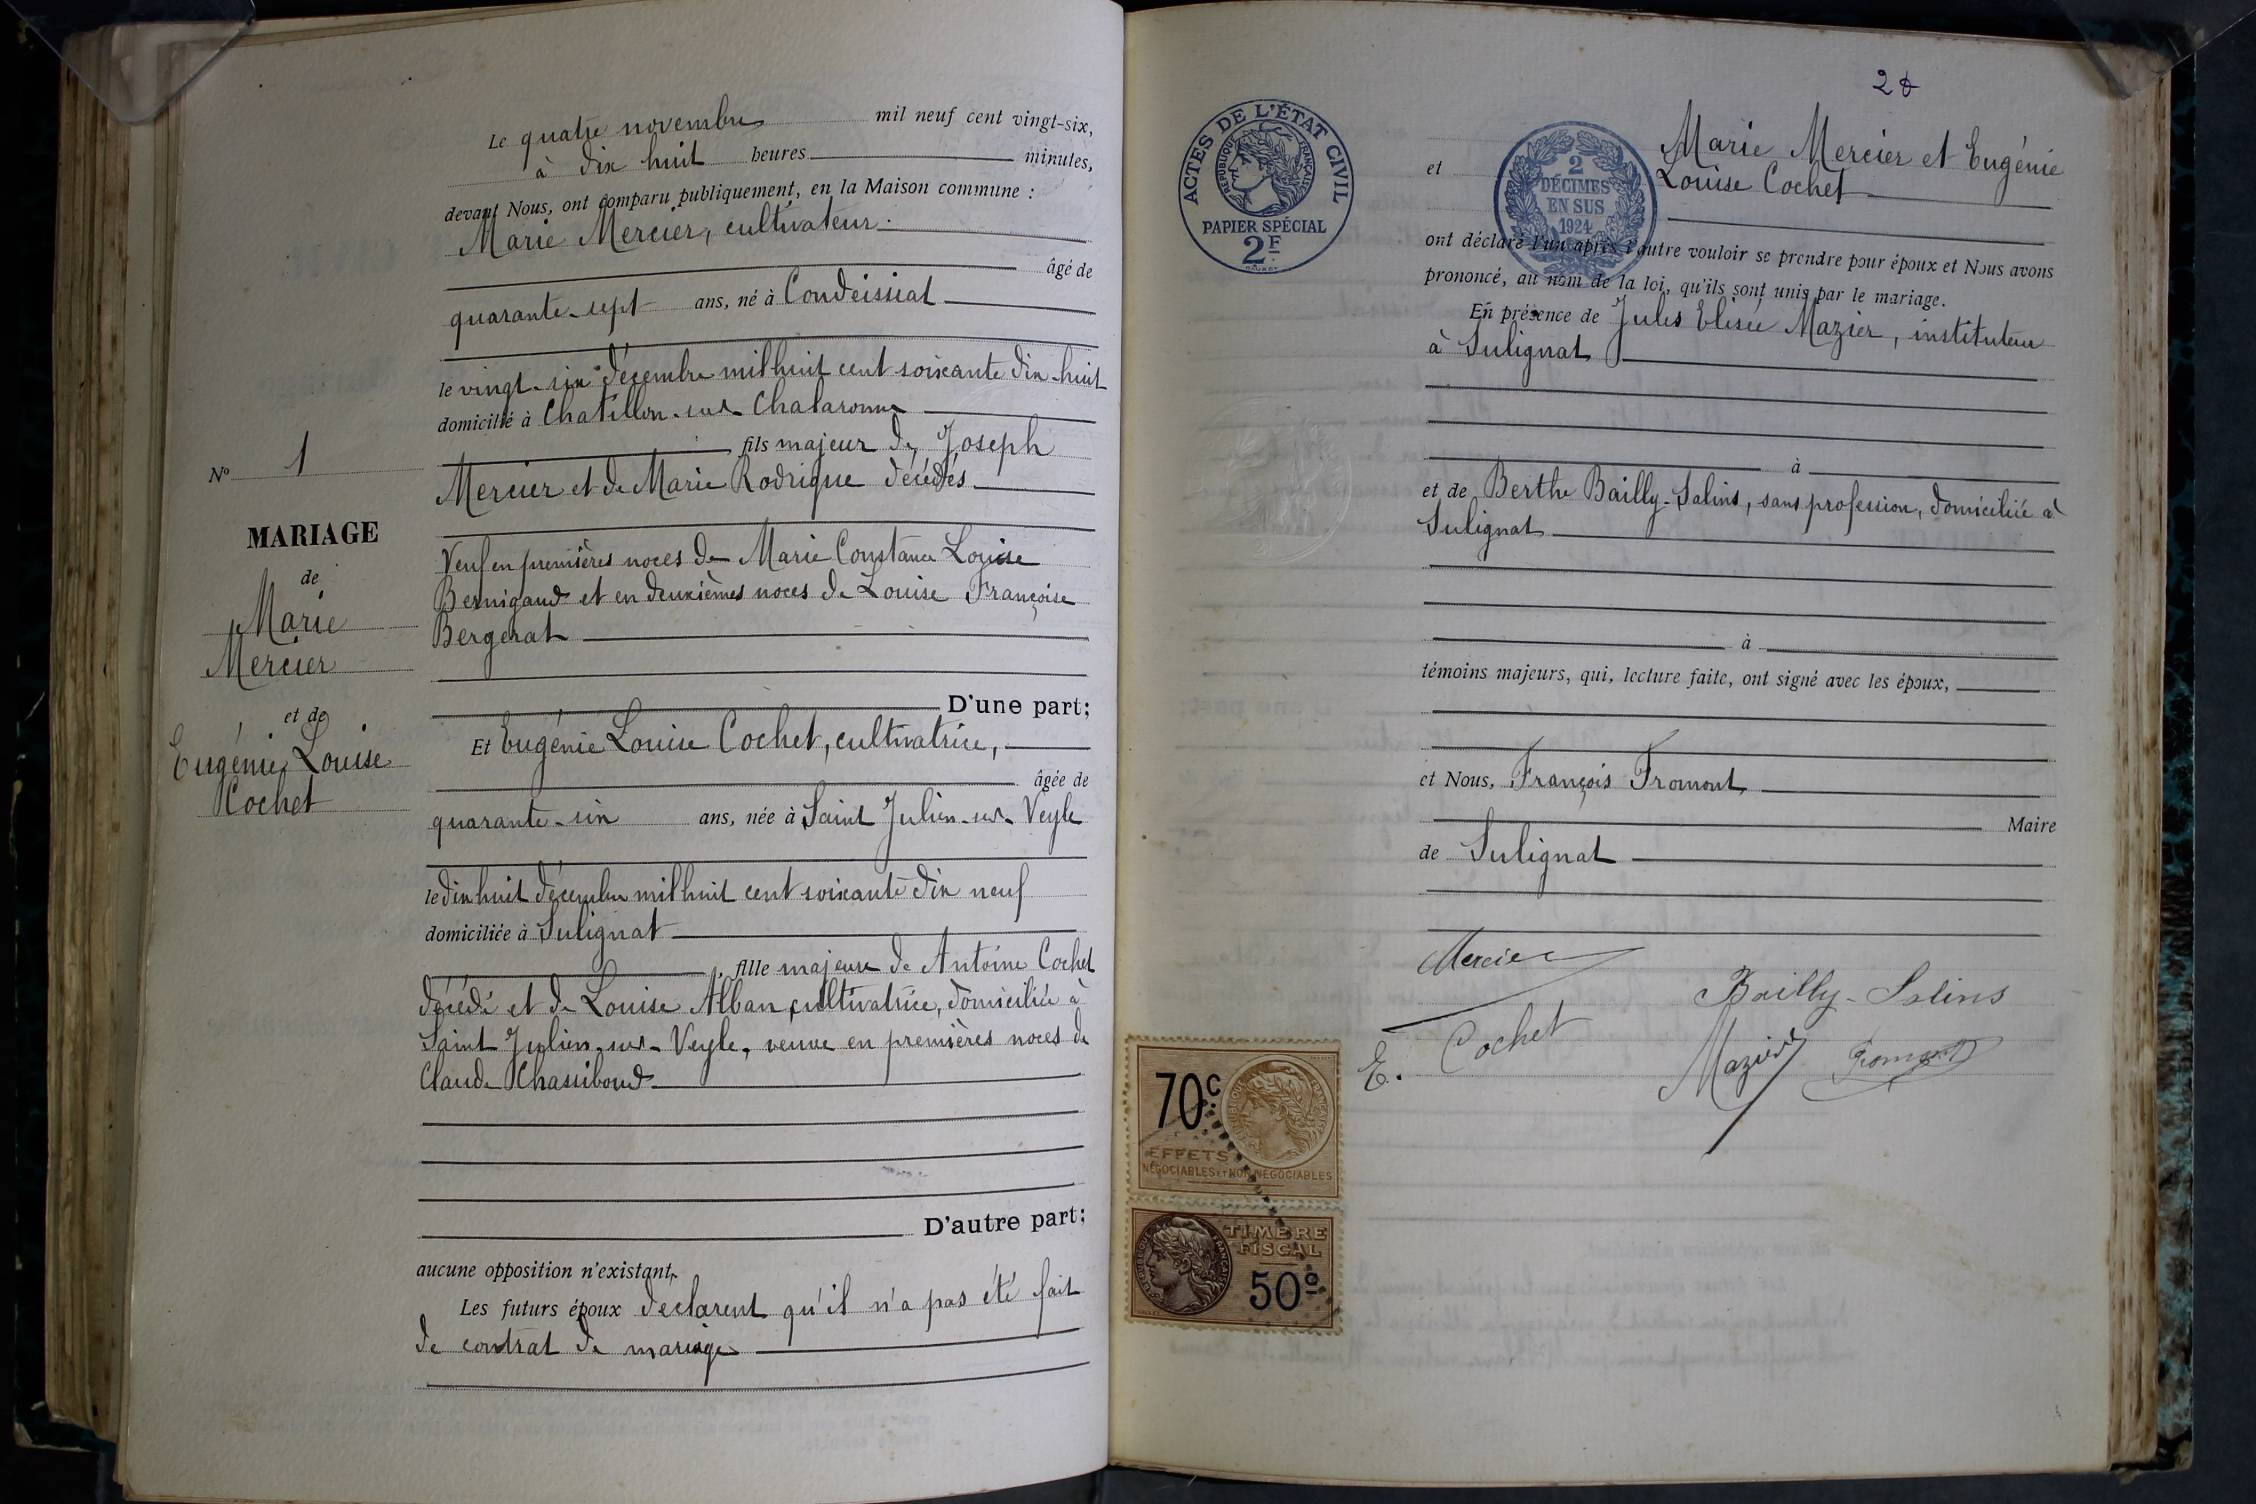 Le quatre novembre mil neuf cent vingt-six,
à dix huit heures minutes,
devant Nous, ont comparu publiquement, en la Maison commune :
Marie Mercier, cultivateur
âgé de
quarante-sept ans, né à Condeissiat
le vingt-six décembre mil huit cent soixante dix-huit
domicilié à Chatillon-sur-Chalaronne
fils majeur de Joseph
Mercier et de Marie Rodrigue décédés
Veuf en premières noces de Marie Constance Louise
Bernigaud et en deuxièmes noces de Louise Françoise
Bergerat
D'une part;
Et Eugénie Louise Cochet, cultivatrice,
âgée de
quarante-six ans, née à Saint Julien-sur-Veyle
le dix huit décembre mil huit cent soixante dix neuf
domiciliée à Sulignat
fille majeure de Antoine Cochet
décédé et de Louise Alban, cultivatrice, domiciliée à
Saint Julien-sur-Veyle, veuve en premières noces de
Claude Chassiboud
D'autre part;
aucune opposition n'existant,
Les futurs époux déclarent qu'il n'a pas été fait
de contrat de mariage
N° 1
MARIAGE
de
Marie
Mercier
et de
Eugénie Louise
Cochet
ACTES DE L'ÉTAT CIVIL
RÉPUBLIQUE FRANÇAISE
PAPIER SPÉCIAL
2F
2 DÉCIMES
EN SUS
1924
et Marie Mercier et Eugénie
Louise Cochet
ont déclaré l'un après l'autre vouloir se prendre pour époux et Nous avons
prononcé, au nom de la loi, qu'ils sont unis par le mariage.
En présence de Jules Elisée Mazier, instituteur
à Sulignat
à
et de Berthe Bailly-Salins, sans profession, domiciliée à
Sulignat
à
témoins majeurs, qui, lecture faite, ont signé avec les époux,
et Nous, François Fromont,
Maire
de Sulignat
Mercier
Bailly-Salins
E. Cochet
Mazier Fromont
70c
EFFETS
NÉGOCIABLES ET NON NÉGOCIABLES
TIMBRE
FISCAL
50c